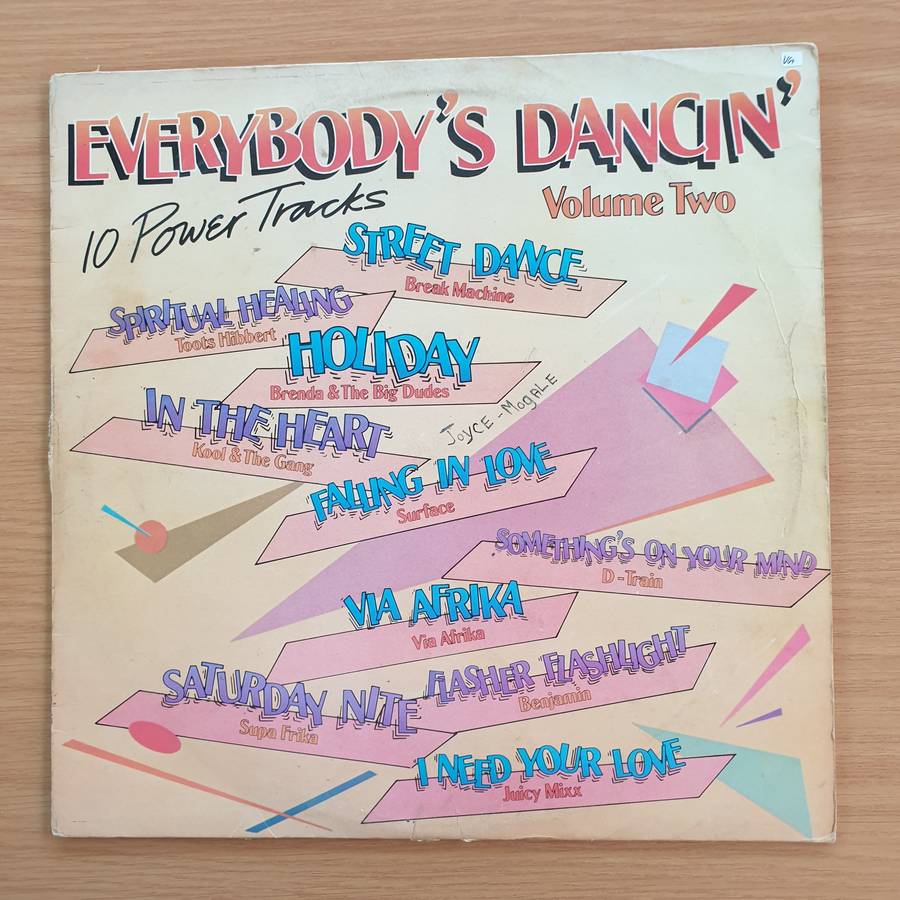 VG+
EVERYBODY'S DANCIN'
Volume Two
10 Power Tracks
STREET DANCE
Break Machine
SPIRITUAL HEALING
Toots Hibbert
HOLIDAY
Brenda & The Big Dudes
JOYCE - MOGALE
IN THE HEART
Kool & The Gang
FALLING IN LOVE
Surface
SOMETHING'S ON YOUR MIND
D-Train
VIA AFRIKA
Via Afrika
FLASHER FLASHLIGHT
Benjamin
SATURDAY NITE
Supa Frika
I NEED YOUR LOVE
Juicy Mixx